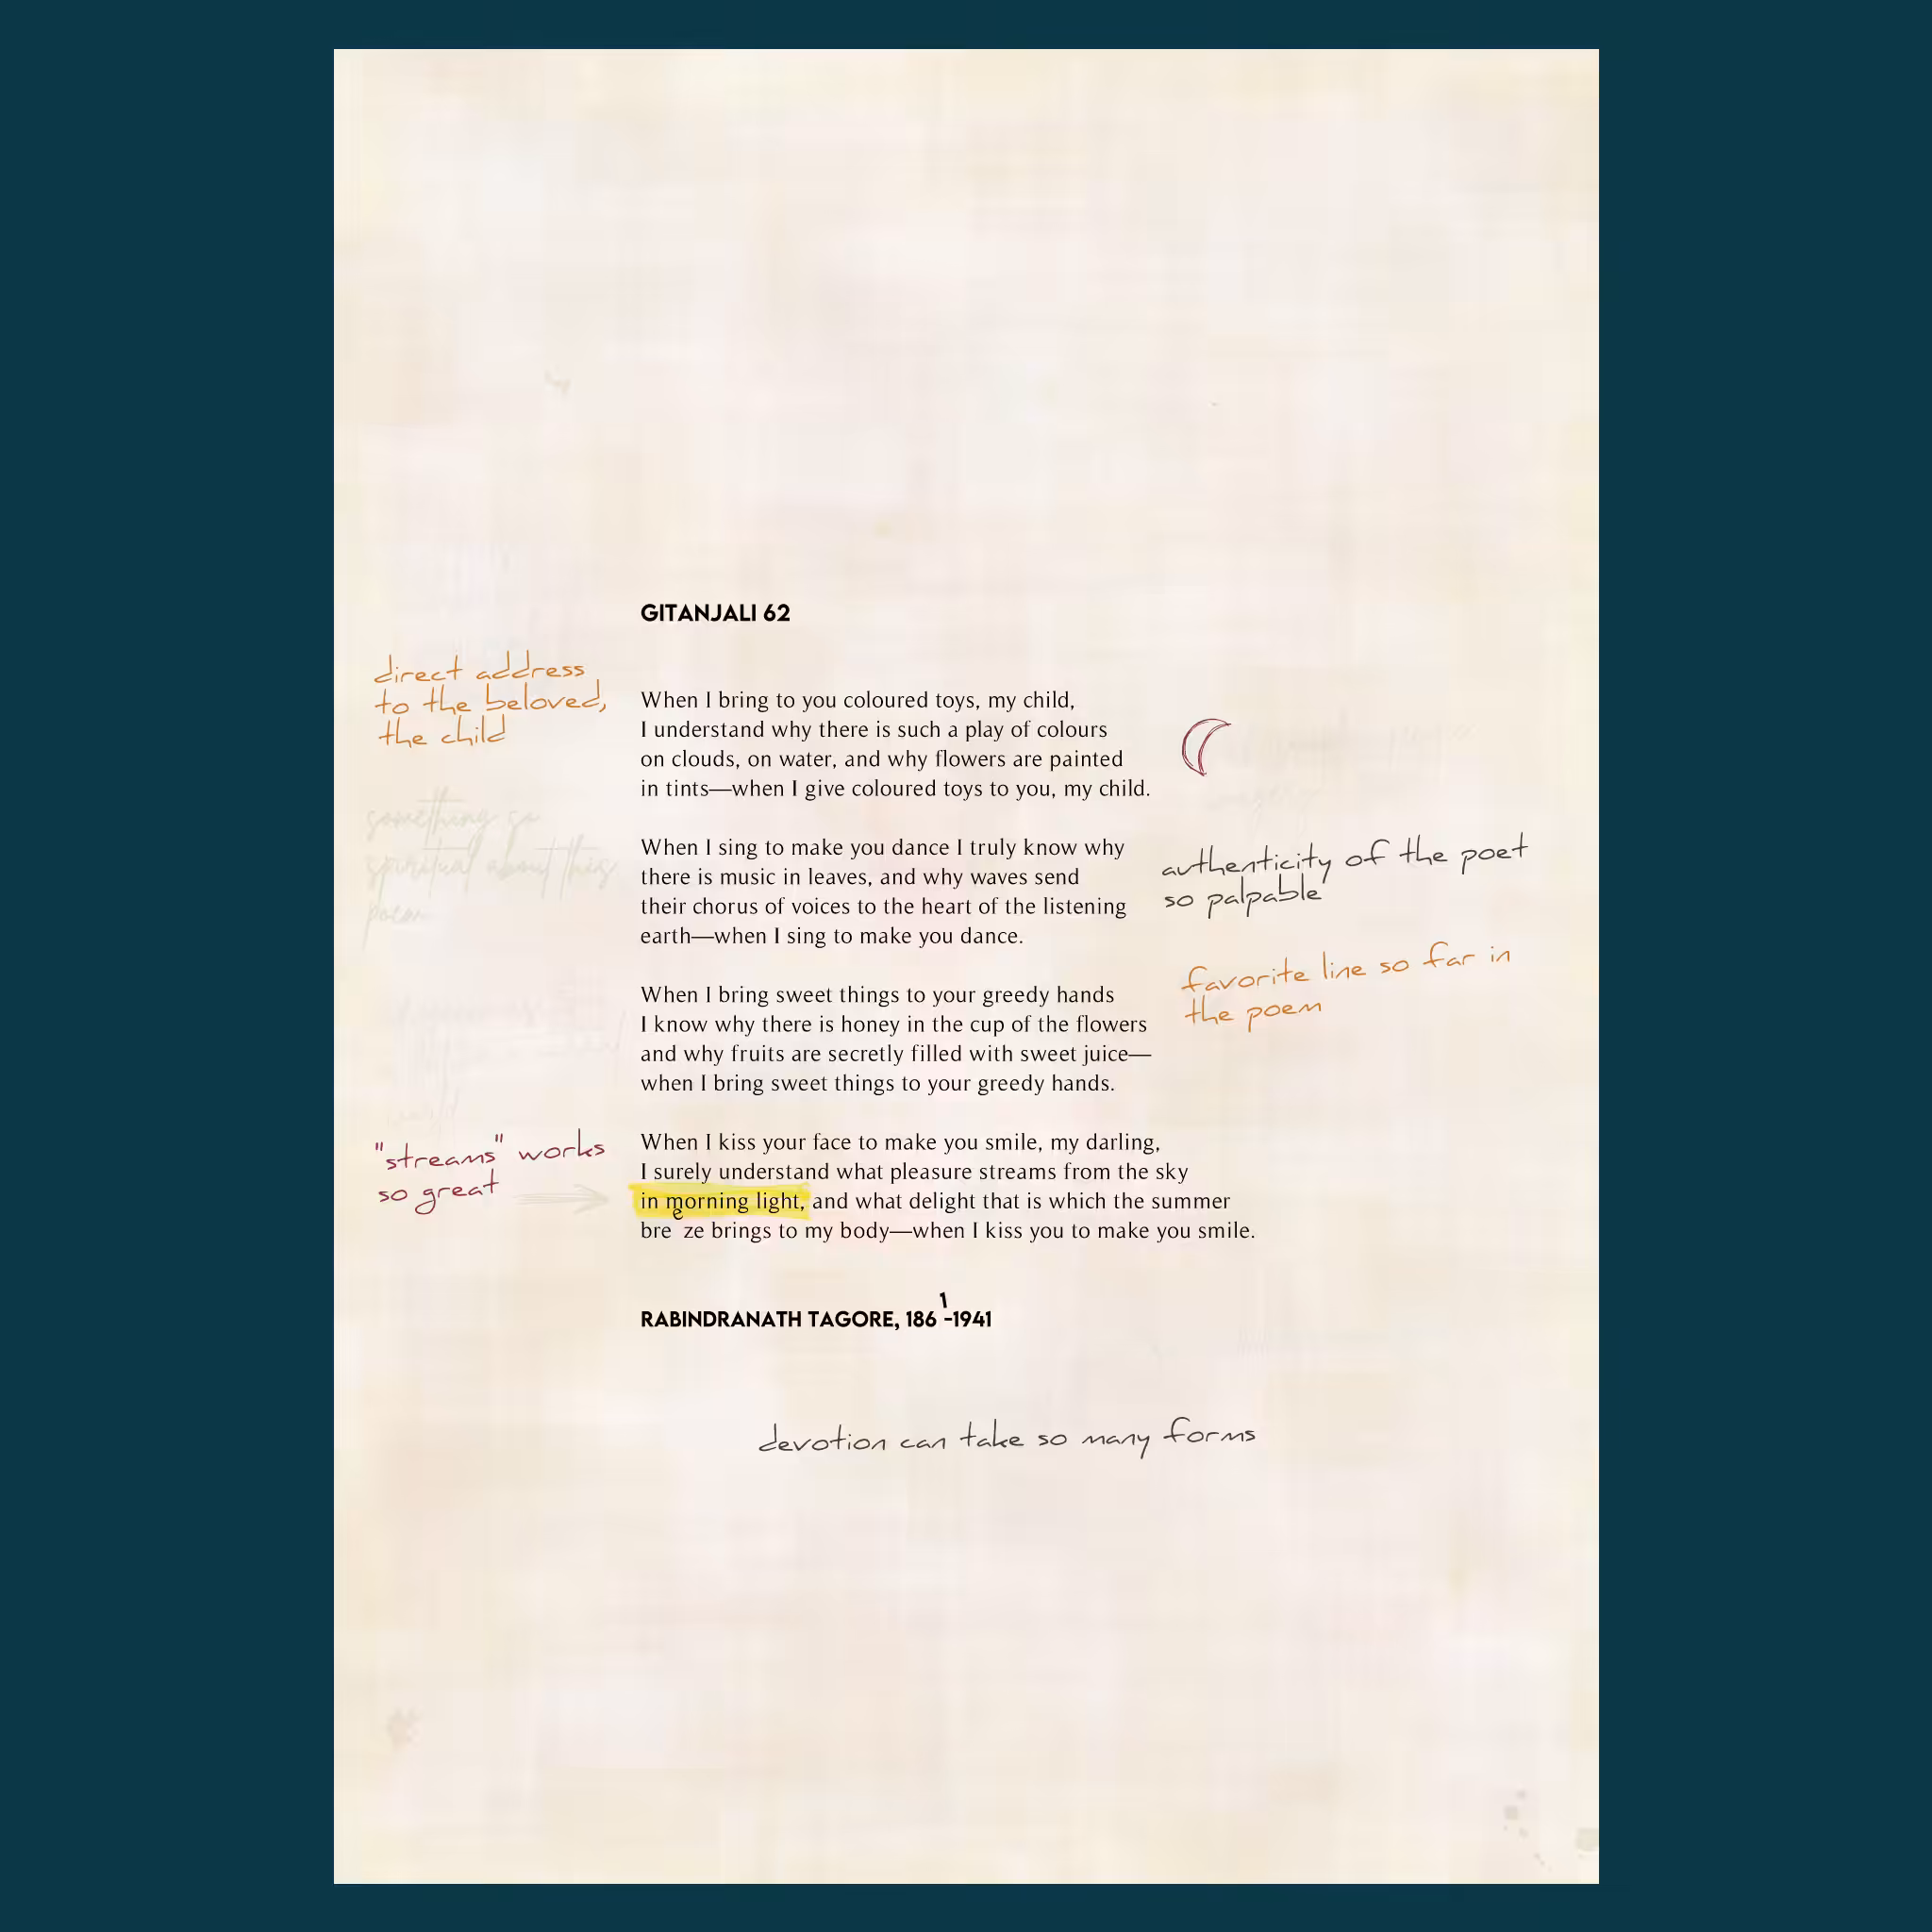 GITANJALI 62
direct address
to the beloved,
the child
When I bring to you coloured toys, my child,
I understand why there is such a play of colours
on clouds, on water, and why flowers are painted
in tints—when I give coloured toys to you, my child.
something so
spiritual about this
poem
When I sing to make you dance I truly know why
there is music in leaves, and why waves send
their chorus of voices to the heart of the listening
earth—when I sing to make you dance.
authenticity of the poet
so palpable
favorite line so far in
the poem
When I bring sweet things to your greedy hands
I know why there is honey in the cup of the flowers
and why fruits are secretly filled with sweet juice—
when I bring sweet things to your greedy hands.
"streams" works
so great
When I kiss your face to make you smile, my darling,
I surely understand what pleasure streams from the sky
in morning light, and what delight that is which the summer
breeze brings to my body—when I kiss you to make you smile.
RABINDRANATH TAGORE, 1861-1941
devotion can take so many forms